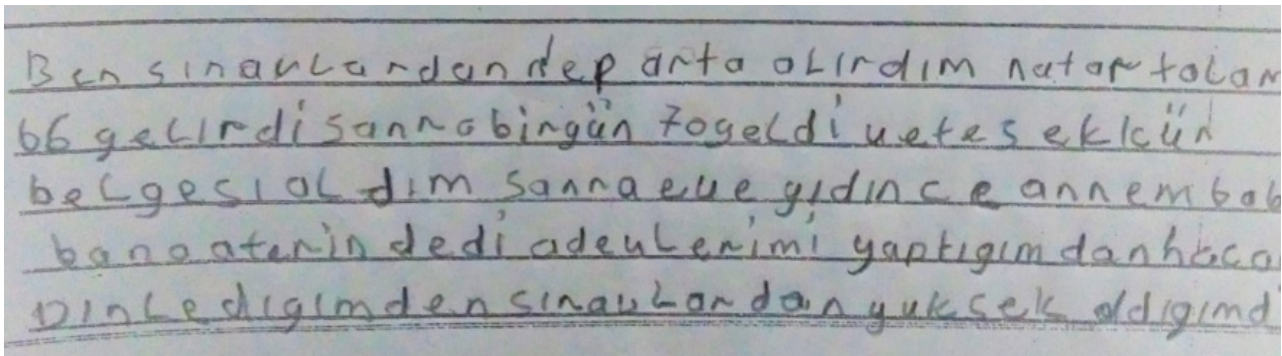 Ben sınavlardan dep arta olırdım natar tolam
66 gelirdi sanra bingün 70 geldi ve tes ekkür
belgesi aldım sanra eve gidince annem bab
bana aferin dedi adevlerimi yaptıgım dan haca
Dinledigimden sınavlardan yuksek aldıgımd